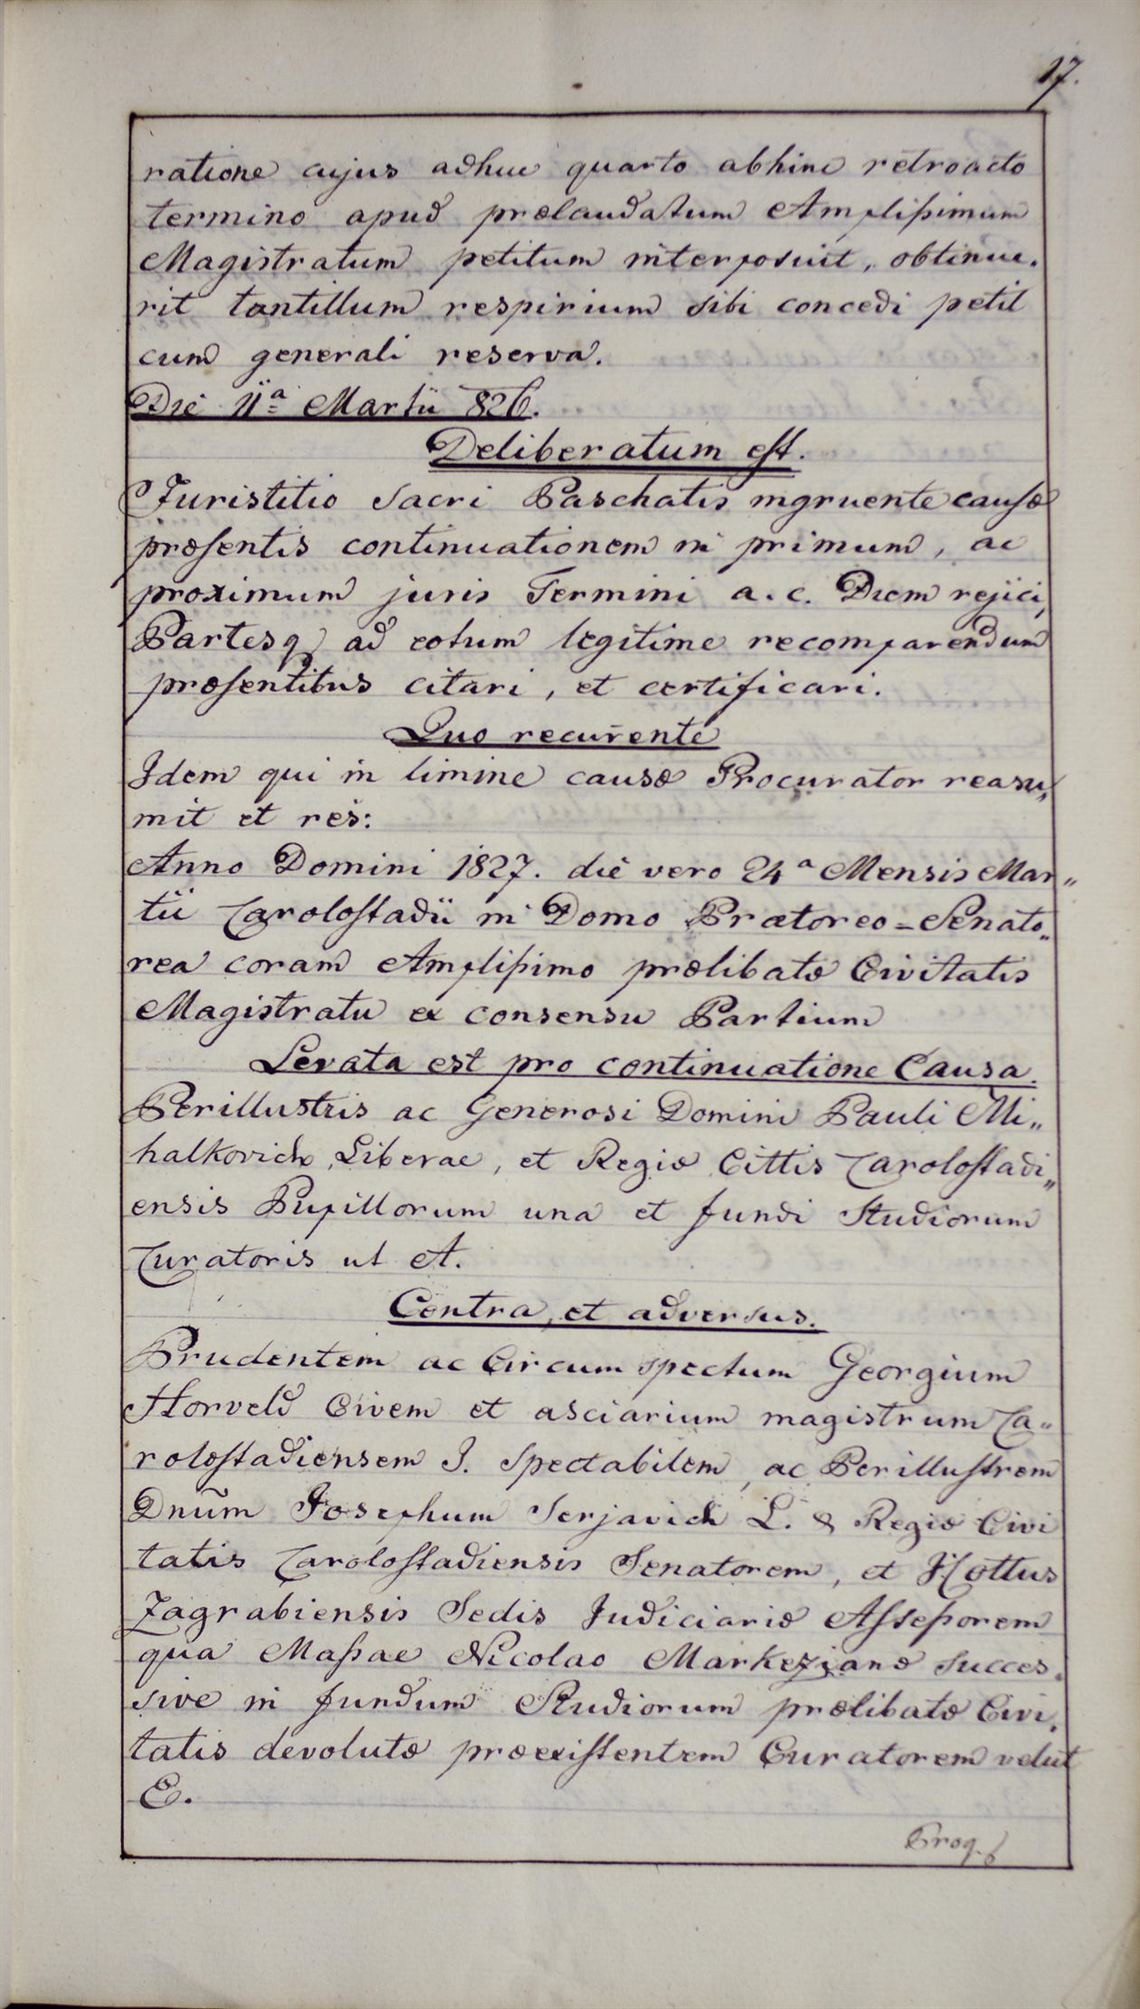 17.
ratione cujus adhuc quarto abhinc retroacto
termino apud prælaudatum Amplißimum
Magistratum petitum interposuit, obtinue„
rit tantillum respirium sibi concedi petit
cum generali reserva.
Die 11ª Martii 826.
Deliberatum est.
Juristitio Sacri Paschatis ingruente causæ
præsentis continuationem in primum, ac
proximum juris Termini a. c. Diem rejici,
Partesq ad eotum legitime recomparendum
præsentibus citari, et certificari.
Quo recurrente
Idem qui in limine causæ Procurator reasu„
mit et res:
Anno Domini 1827. die vero 24ª Mensis Mar„
tii Carolostadii in Domo Prætoreo=Senato„
rea coram Amplißimo prælibatæ Civitatis
Magistratu ex consensu Partium
Levata est pro continuatione Causa.
Perillustris ac Generosi Domini Pauli Mi„
halkovich, Liberae, et Regiæ Cittis Carolostadi„
ensis Pupillorum una et fundi Studiorum
Curatoris ut A.
Contra, et adversus.
Prudentem ac Circumspectum Georgium
Horveld Civem et asciarium magistrum Ca„
rolostadiensem J. Spectabilem, ac Perillustrem
Dnũm Josephum Serjavich L. & Regiæ Civi
tatis Carolostadiensis Senatorem, et I Cottus
Zagrabiensis Sedis Judiciariæ Asseßorem
qua Maßae Nicolao Markezianæ succes„
sive in fundum Studiorum prælibatæ Civi„
tatis devolutæ præexistentem Curatorem velut
E.
Proq.